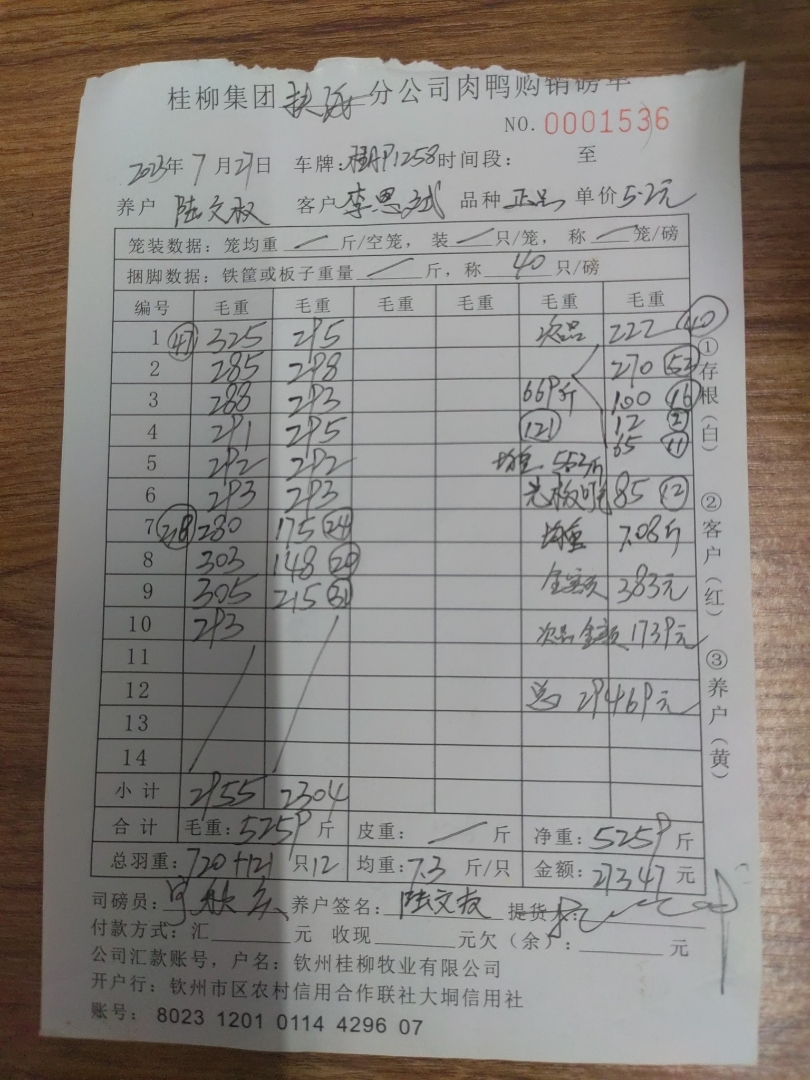 桂柳集团 扶绥 分公司肉鸭购销磅单
NO. 0001536
2023年 7 月27日 车牌: 1258 时间段: 至
养户 陆文权 客户 李恩斌 品种 正品 单价 5.2元
笼装数据: 笼均重 / 斤/空笼, 装 / 只/笼, 称 / 笼/磅
捆脚数据: 铁筐或板子重量 / 斤, 称 40 只/磅
编号 毛重 毛重 毛重 毛重 毛重 毛重
1 325 295 次品 222 40
2 285 298 270 52
3 288 293 669斤 100 16
4 291 295 121 12 2
65 11
5 292 292 均重 5.53斤
6 293 293 85 12
7 280 175 24 均重 7.08斤
8 303 148 20
9 305 215 31 金额 383元
10 293 次品金额 1739元
11
12 总 29469元
13
14
小计 2955 2304
合计 毛重: 5259 斤 皮重: / 斤 净重: 5259 斤
总羽重: 720+121 只12 均重: 7.3 斤/只 金额: 27347 元
司磅员: 养户签名: 陆文权 提货人:
付款方式: 汇 元 收现 元欠(余): 元
公司汇款账号, 户名: 钦州桂柳牧业有限公司
开户行: 钦州市区农村信用合作联社大垌信用社
账号: 8023 1201 0114 4296 07
①存根(白)
②客户(红)
③养户(黄)